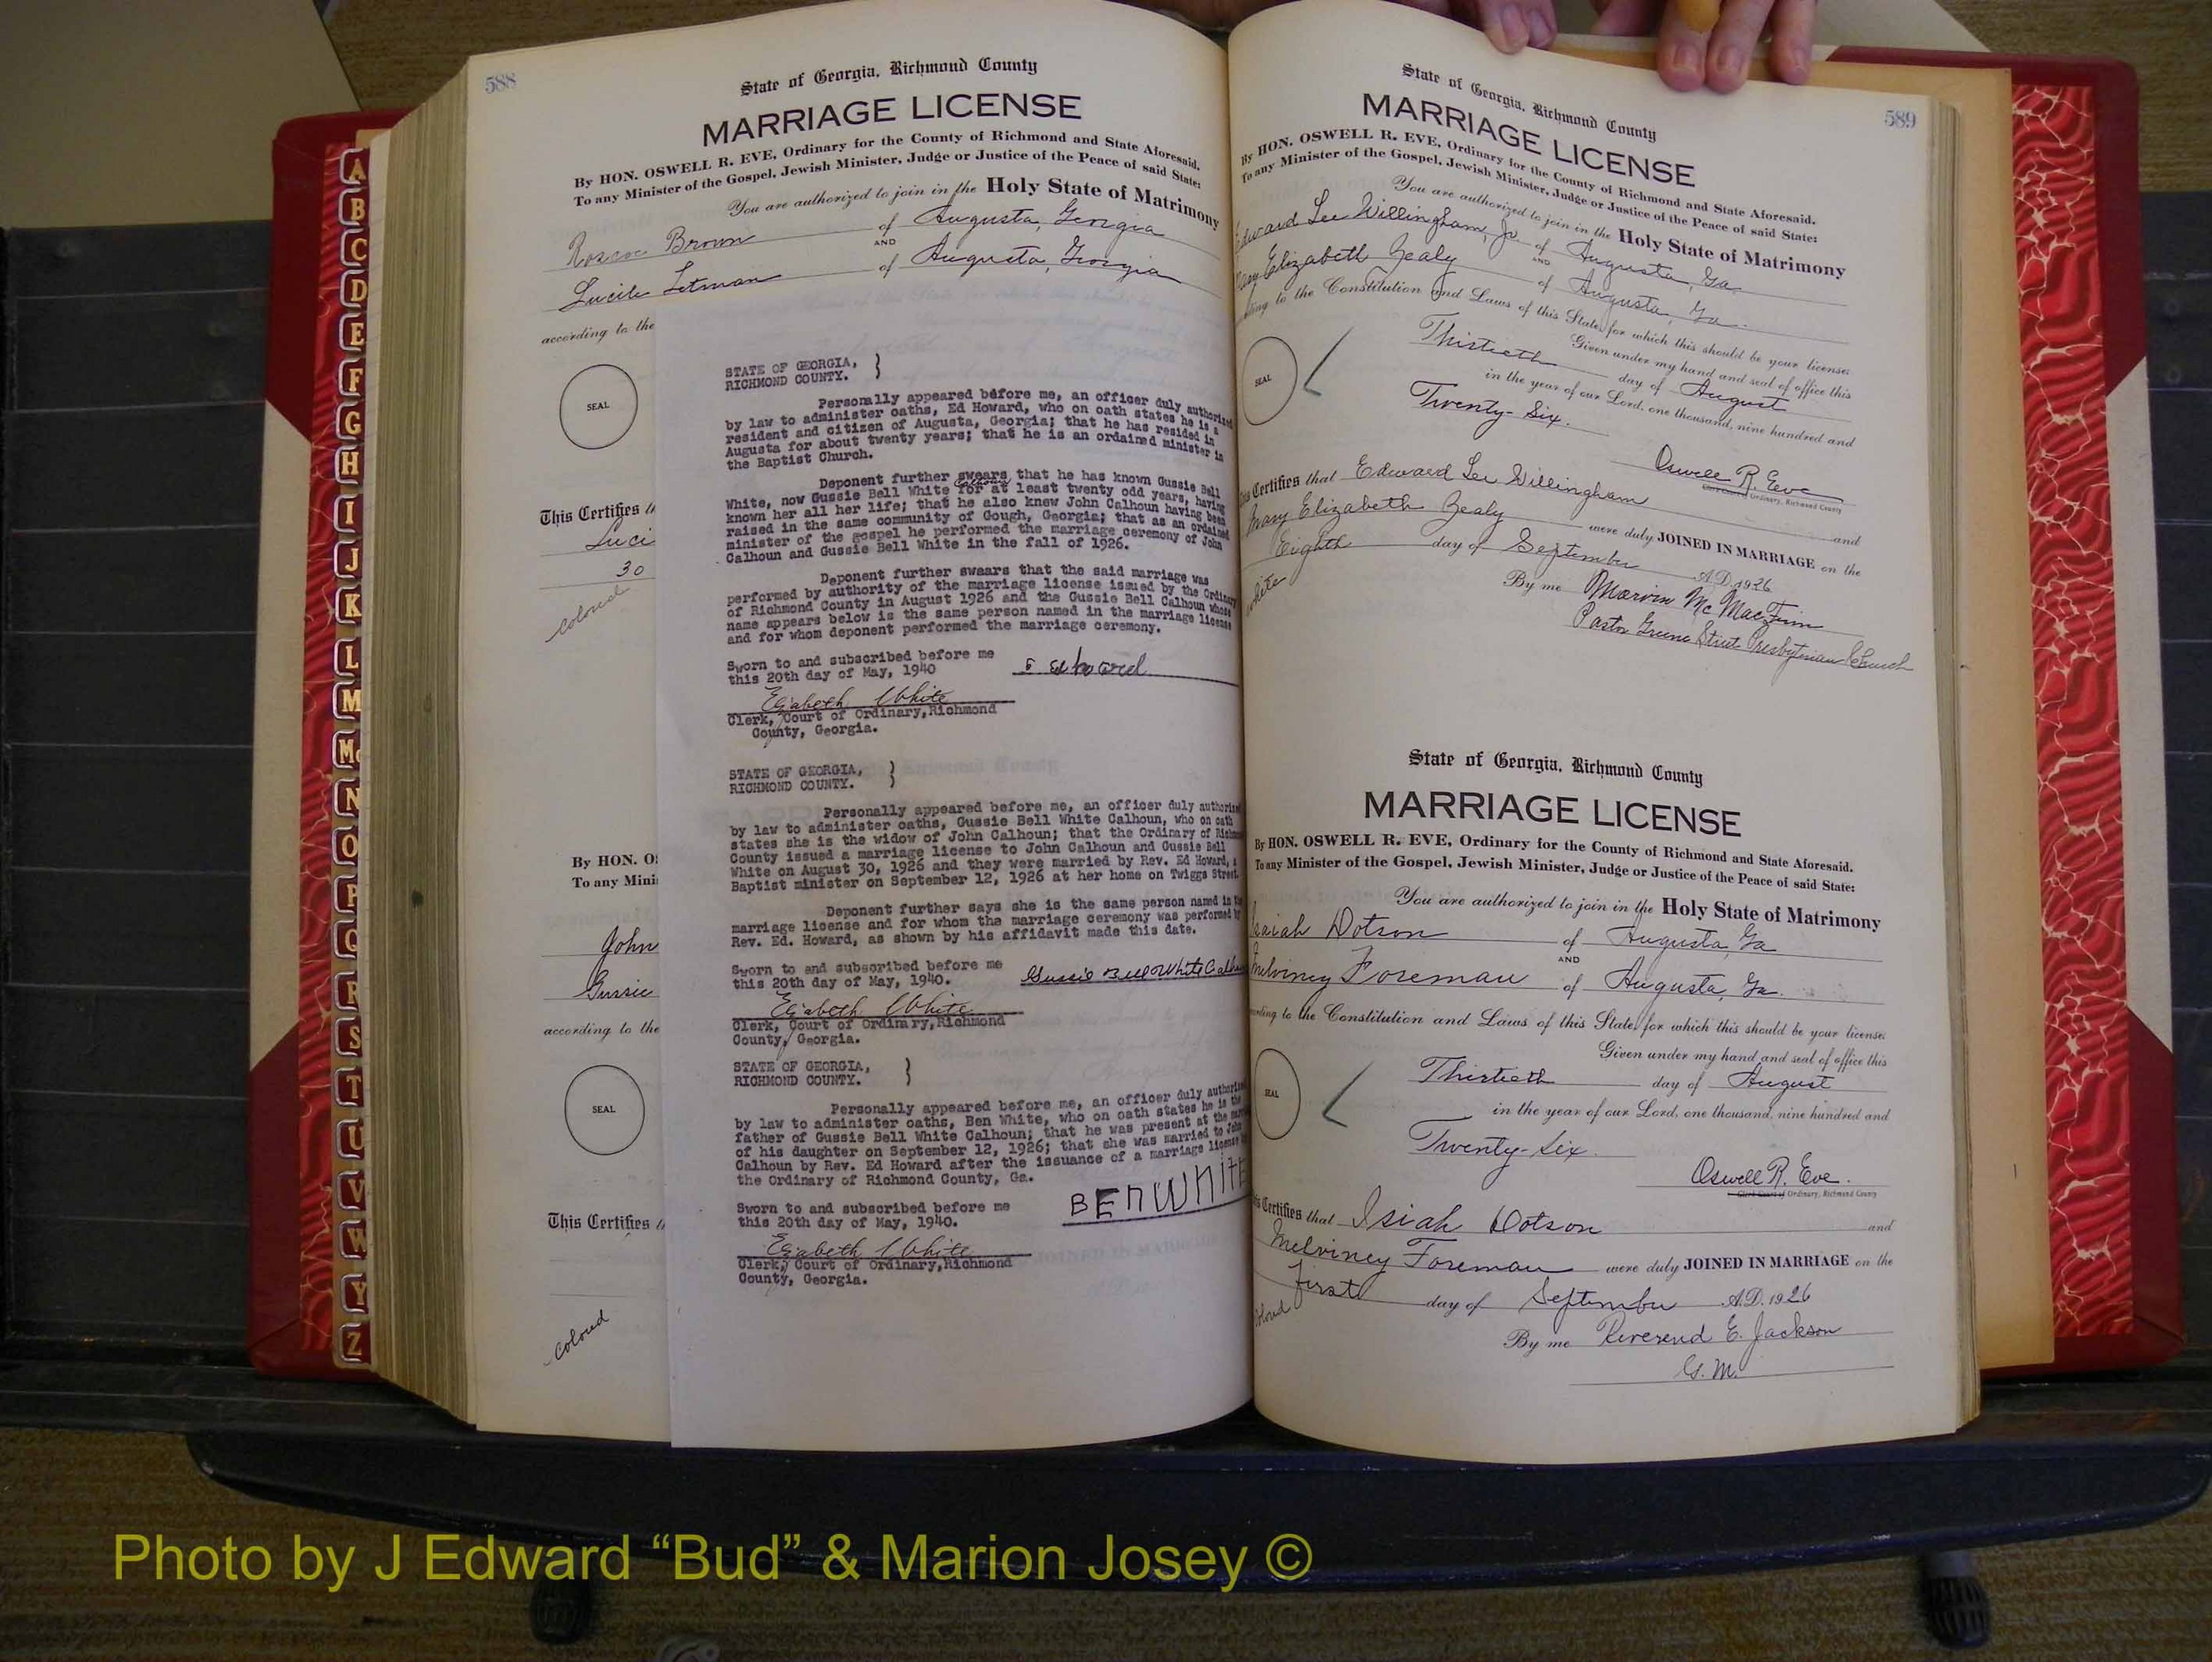 588
State of Georgia, Richmond County
MARRIAGE LICENSE
By HON. OSWELL R. EVE, Ordinary for the County of Richmond and State Aforesaid.
To any Minister of the Gospel, Jewish Minister, Judge or Justice of the Peace of said State:
You are authorized to join in the Holy State of Matrimony
Roscoe Brown of Augusta, Georgia
AND
Lucile Letman of Augusta, Georgia
according to the
SEAL
This Certifies
Luci
30
Colored
STATE OF GEORGIA, }
RICHMOND COUNTY.
Personally appeared before me, an officer duly authorized
by law to administer oaths, Ed Howard, who on oath states he is a
resident and citizen of Augusta, Georgia; that he has resided in
Augusta for about twenty years; that he is an ordained minister in
the Baptist Church.
Deponent further swears that he has known Gussie Bell
Calhoun
White, now Gussie Bell White for at least twenty odd years, having
known her all her life; that he also knew John Calhoun having been
raised in the same community of Gough, Georgia; that as an ordained
minister of the gospel he performed the marriage ceremony of John
Calhoun and Gussie Bell White in the fall of 1926.
Deponent further swaars that the said marriage was
performed by authority of the marriage license issued by the Ordinary
of Richmond County in August 1926 and the Gussie Bell Calhoun whose
name appears below is the same person named in the marriage license
and for whom deponent performed the marriage ceremony.
Sworn to and subscribed before me
this 20th day of May, 1940
Elizabeth White
Clerk, Court of Ordinary,Richmond
County, Georgia.
STATE OF GEORGIA, }
RICHMOND COUNTY.
Personally appeared before me, an officer duly authorized
by law to administer oaths, Gussie Bell White Calhoun, who on oath
states she is the widow of John Calhoun; that the Ordinary of Richmond
County issued a marriage license to John Calhoun and Gussie Bell
White on August 30, 1926 and they were married by Rev. Ed Howard, a
Baptist minister on September 12, 1926 at her home on Twiggs Street.
Deponent further says she is the same person named in the
marriage license and for whom the marriage ceremony was performed by
Rev. Ed. Howard, as shown by his affidavit made this date.
Sworn to and subscribed before me
this 20th day of May, 1940. Gussie Bell White Calhoun
Elizabeth White
Clerk, Court of Ordinary,Richmond
County, Georgia.
STATE OF GEORGIA, }
RICHMOND COUNTY.
Personally appeared before me, an officer duly authorized
by law to administer oaths, Ben White, who on oath states he is the
father of Gussie Bell White Calhoun; that he was present at the
of his daughter on September 12, 1926; that she was married to John
Calhoun by Rev. Ed Howard after the issuance of a marriage license
the Ordinary of Richmond County, Ga.
BEN WHITE
Sworn to and subscribed before me
this 20th day of May, 1940.
Elizabeth White
Clerk, Court of Ordinary,Richmond
County, Georgia.
By HON. O
To any Mini
John
Gussie
according to the
SEAL
This Certifies
Colored
589
State of Georgia, Richmond County
MARRIAGE LICENSE
By HON. OSWELL R. EVE, Ordinary for the County of Richmond and State Aforesaid.
To any Minister of the Gospel, Jewish Minister, Judge or Justice of the Peace of said State:
You are authorized to join in the Holy State of Matrimony
Edward Lee Willingham, Jr. of Augusta, Ga.
AND
Mary Elizabeth Zealy of Augusta, Ga.
according to the Constitution and Laws of this State, for which this should be your license.
Given under my hand and seal of office this
Thirtieth day of August
in the year of our Lord, one thousand, nine hundred and
Twenty-Six.
SEAL
Oswell R. Eve
Clerk Court of Ordinary, Richmond County
This Certifies that Edward Lee Willingham and
Mary Elizabeth Zealy were duly JOINED IN MARRIAGE on the
Eighth day of September A.D. 1926
White
By me Marvin
Pastor Greene Street Presbyterian Church
State of Georgia, Richmond County
MARRIAGE LICENSE
By HON. OSWELL R. EVE, Ordinary for the County of Richmond and State Aforesaid.
To any Minister of the Gospel, Jewish Minister, Judge or Justice of the Peace of said State:
You are authorized to join in the Holy State of Matrimony
Isaiah Dotson of Augusta, Ga
AND
Melviney Foreman of Augusta, Ga.
according to the Constitution and Laws of this State, for which this should be your license.
Given under my hand and seal of office this
Thirtieth day of August
in the year of our Lord, one thousand, nine hundred and
Twenty-Six.
SEAL
Oswell R. Eve.
Clerk Court of Ordinary, Richmond County
This Certifies that Isiah Dotson and
Melviney Foreman were duly JOINED IN MARRIAGE on the
first day of September A.D. 1926
Colored
By me Reverend E. Jackson
G. M.
A
B
C
D
E
F
G
H
I
J
K
L
M
Mc
N
O
P
Q
R
S
T
U
V
W
Y
Z
Photo by J Edward “Bud” & Marion Josey ©